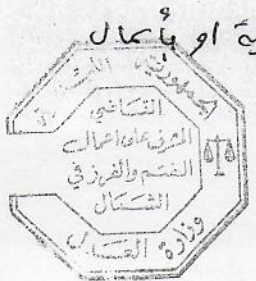 ية او بأعمال
الجمهورية اللبنانية
القاضي
المشرف على اعمال
الضم والفرز في
الشمال
وزارة العدل